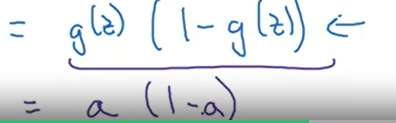 = g(z) (1-g(z)) ←
= a (1-a)